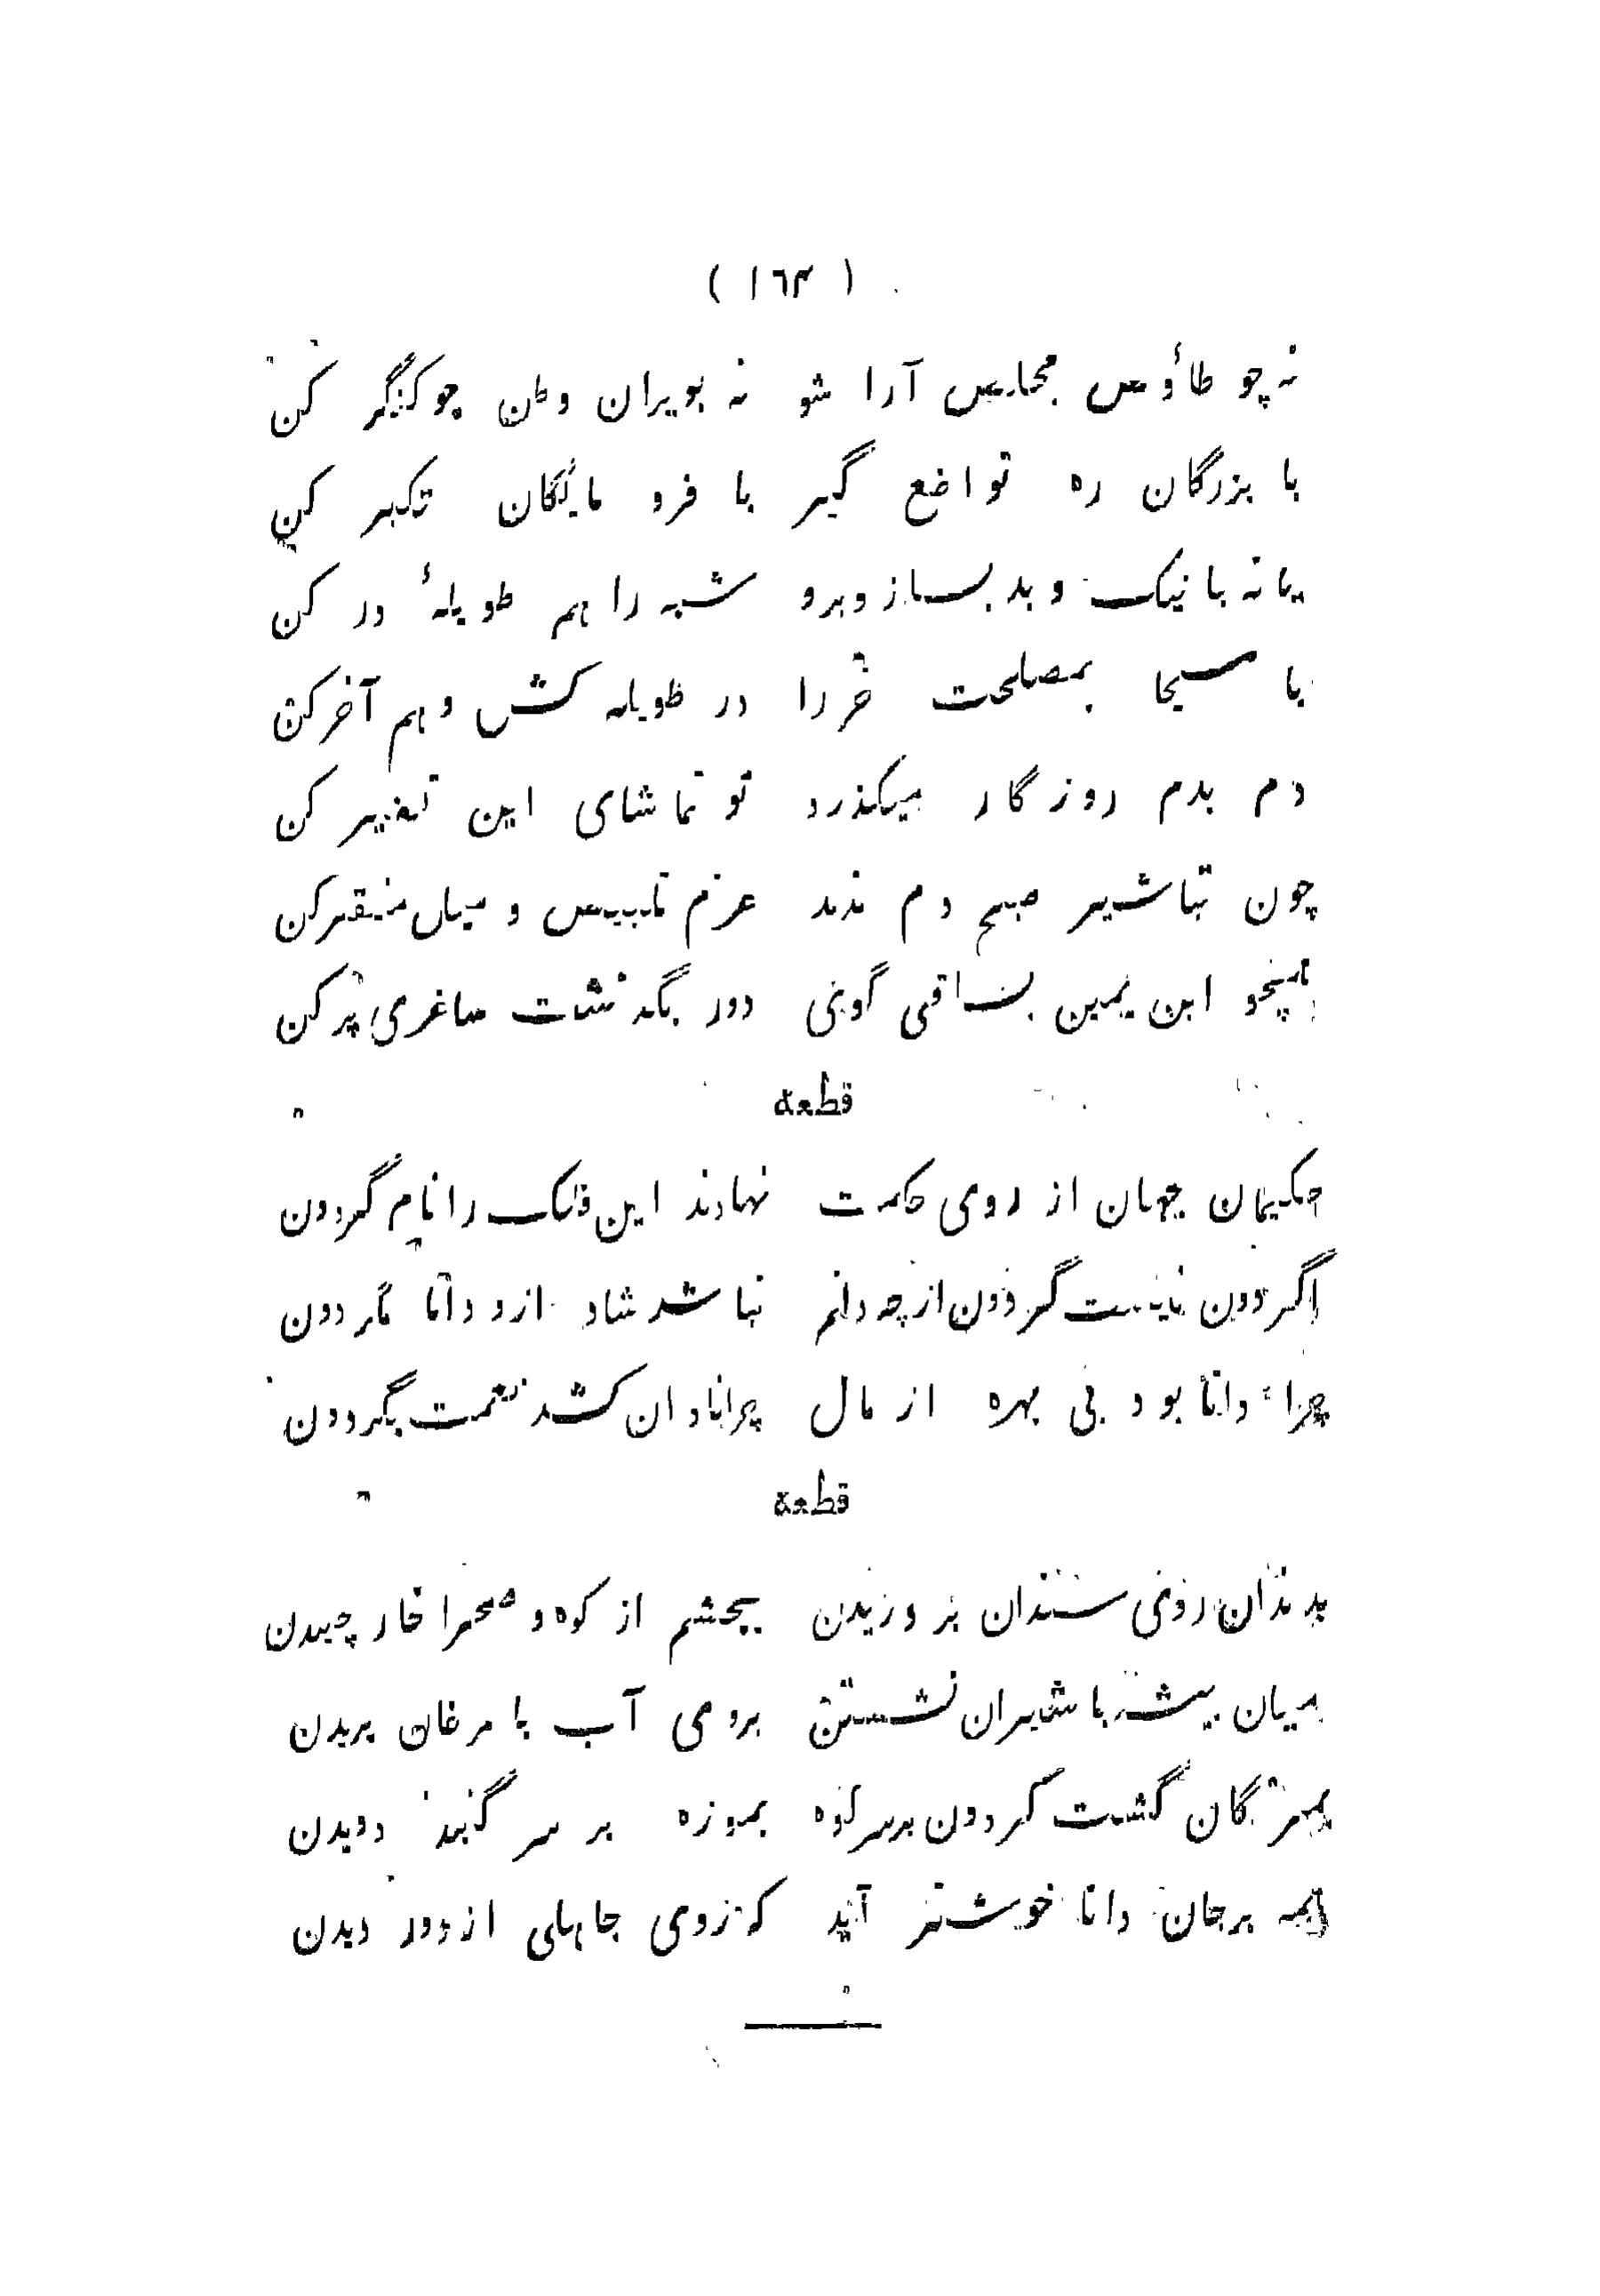 ( ۱٦۳ )
نه چو طاؤس مجلس آرا شو نه بویران وطن چو کنگر کن
با بزرگان ره تواضع گیر با فرو مایگان تکبر کن
یا نه با نیک و بد بساز و برو شبه را هم طویلهٔ در کن
یا مسیحا بمصلحت خر را در طویله کش و هم آخر کن
دم بدم روزگار میگذرد تو تماشای این تغییر کن
چون تباشیر صبح دم نزند عزم تلبیس و میل منقر کن
همچو ابن یمین بساقی گوئی دور بگذشت ساغری پر کن
قطعة
حکیمان جهان از روی حکمت نهادند این فلک را نام گردون
اگر دون نیست گردون از چه دانم نباشد شاد ازو دانا مگر دون
چرا دانا بود بی بهره از مال چرا نادان کشد نعمت بگردون
قطعة
بدندان روی سندان بر وزیدن بچشم از کوه و صحرا خار چیدن
میان بیشه با شیران نشستن بروی آب با مرغان پریدن
بمژگان گشت گردون بر سر کوه بموزه بر سر گنبد دویدن
همه بر جان دانا خوشتر آید که روی جاهلی از دور دیدن